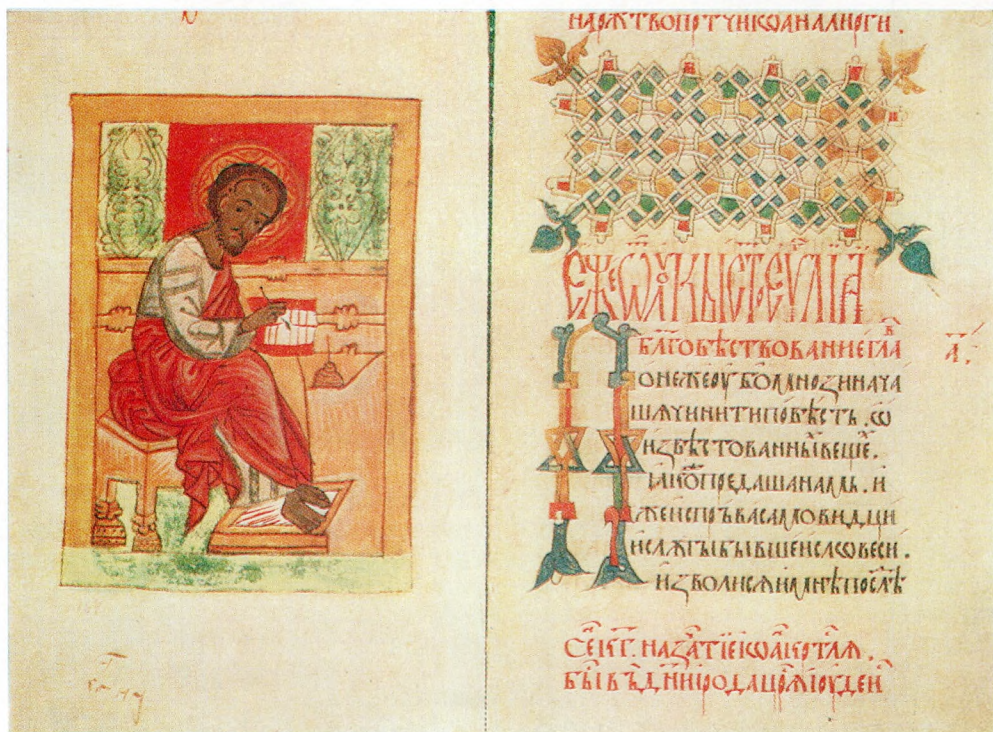 НАРЖТВОПРТЧНІѠАНАЛИТРГИ.
ЕЖЕѾЛꙊКЫСТ꙽ОЕЕѴЛІА
БЛГОВѢСТВОВАНІЕГЛАВ
А҃.
ПОНЕЖЕОУБОМНОЗИНАЧА
ШѦЧИНИТИПОВѢСТЬ. Ѡ
ИЗВѢСТОВАННЫ҇ВЕЩЕ.
ІАКОПРЕДАШАНАМЬ. И
ЖЕИСПРЪВАСАМОВИДЦИ
ИСЛѪГЫБЫВШЕИСЛОВЕСИ.
ИЗВОЛИСѦИМНѢПОСЛѢ
НАЗАТІЕІѠА
БЫ҇ВЪДНИИРОДАЦРѦІОУДЕИ